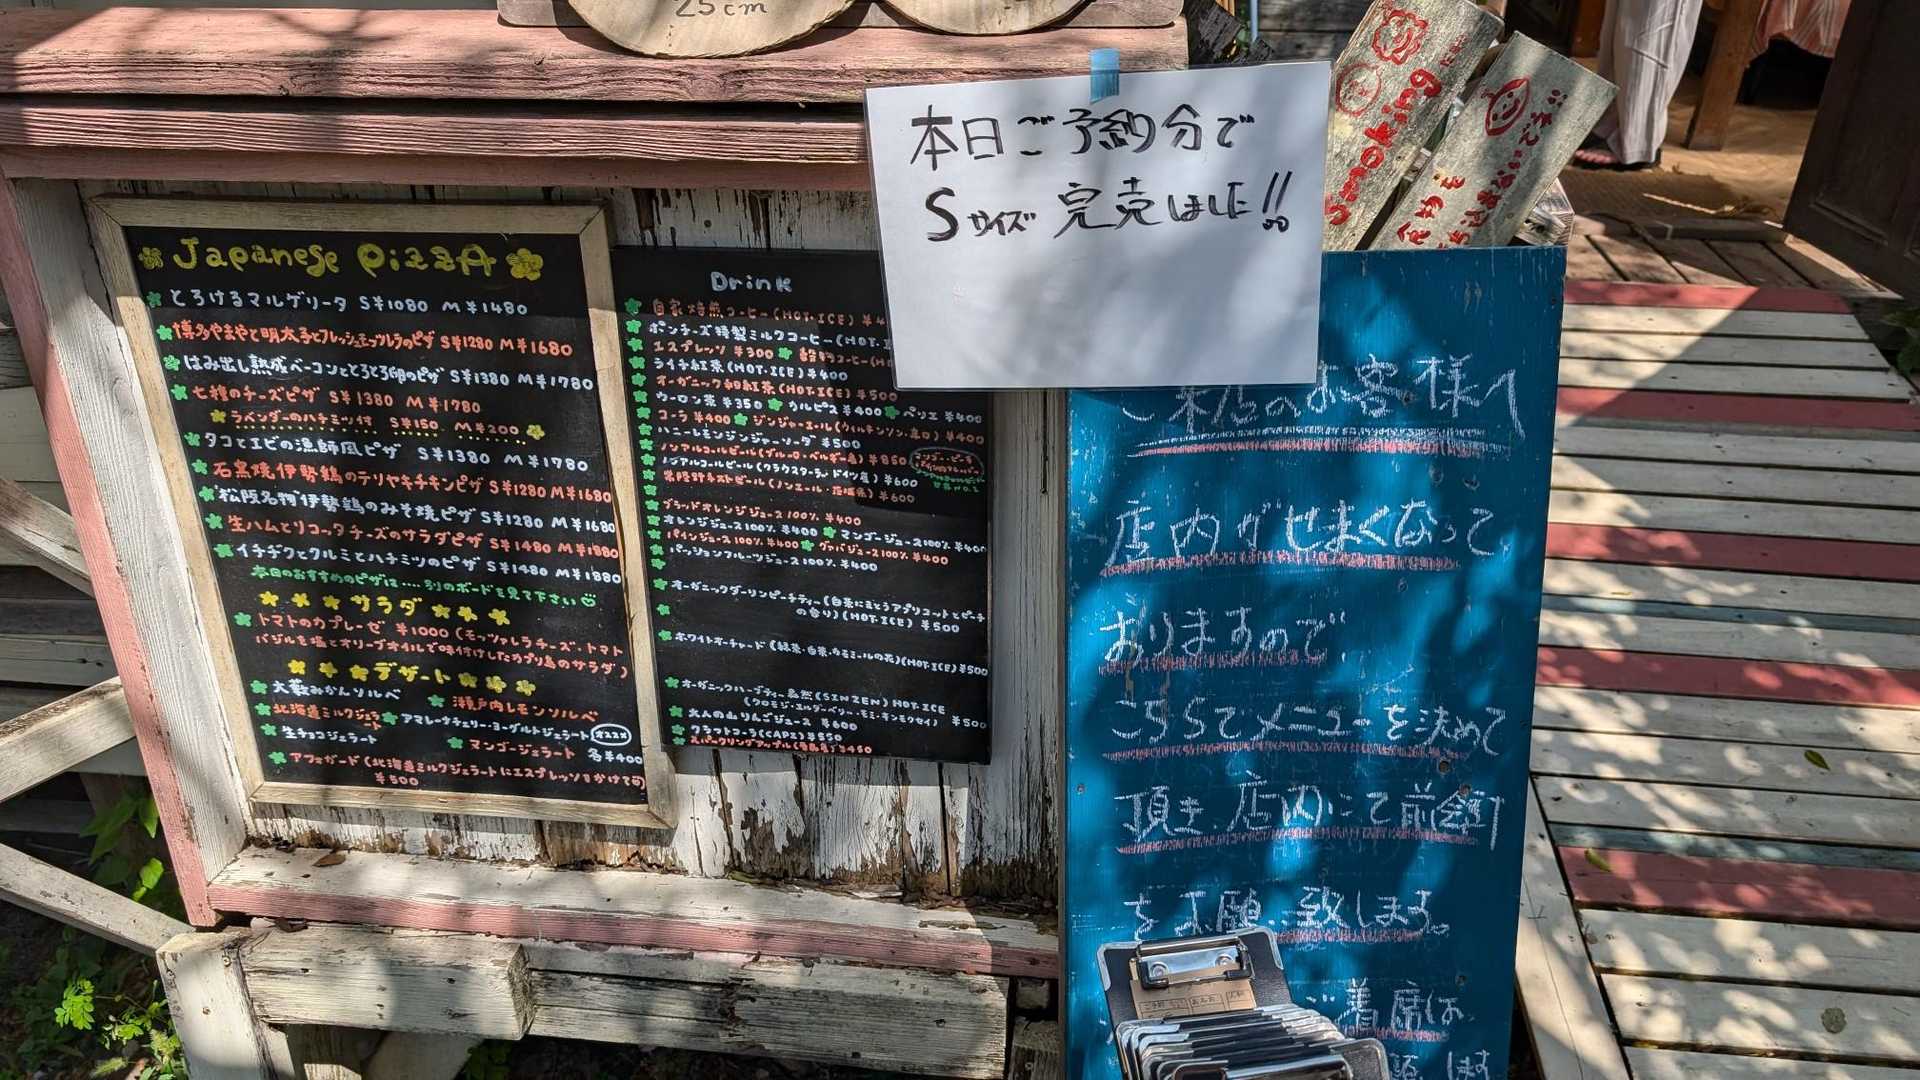 25cm
本日ご予約分で
Sサイズ 完売しました!!
Smoking
Japanese PizzA
とろけるマルゲリータ S¥1080 M¥1480
博多やまやと明太子とフレッシュモッツァレラのピザ S¥1280 M¥1680
はみ出し熟成ベーコンととろとろ卵のピザ S¥1380 M¥1780
七種のチーズピザ S¥1380 M¥1780
ラベンダーのハチミツ付 S¥150 M¥200
タコとエビの漁師風ピザ S¥1380 M¥1780
石黒焼伊勢鶏のテリヤキチキンピザ S¥1280 M¥1680
"松阪名物"伊勢鶏のみそ焼ピザ S¥1280 M¥1680
生ハムとリコッタチーズのサラダピザ S¥1480 M¥1880
イチヂクとクルミとハチミツのピザ S¥1480 M¥1880
本日のおすすめのピザは....別のボードを見て下さい
サラダ
トマトのカプレーゼ ¥1000(モッツァレラチーズ・トマト
バジルを塩とオリーブオイルで味付けしたカプリ島のサラダ)
デザート
大薮みかんソルベ 瀬戸内レモンソルベ
北海道ミルクジェラート アマレーナチェリーヨーグルトジェラート オススメ
生チョコジェラート マンゴージェラート 各¥400
アフォガード(北海道ミルクジェラートにエスプレッソをかけて)
¥500
Drink
自家焙煎コーヒー(HOT・ICE)
ポンチーズ特製ミルクコーヒー(HOT・
エスプレッソ ¥300
ライチ紅茶(HOT・ICE)¥400
オーガニック和紅茶(HOT・ICE)¥500
ウーロン茶 ¥350 カルピス ¥400 ペリエ ¥400
コーラ ¥400 ジンジャーエール(ウィルキンソン・辛口)¥400
ハニーレモンジンジャーソーダ ¥500
ノンアルコールビール(ブルーロ・ベルギー産)¥850
ノンアルコールビール(クラウスターラ・ドイツ産)¥600
ブラッドオレンジジュース100% ¥400
オレンジジュース100% ¥400 マンゴージュース100% ¥400
パインジュース100% ¥400 グァバジュース100% ¥400
パッションフルーツジュース100% ¥400
オーガニックダーリンピーチティー(白茶にミとうアプリコットとピーチ
の香り)(HOT・ICE) ¥500
ホワイトオーチャード(緑茶・白茶・カモミールの花)(HOT・ICE)¥500
(SINZEN)HOT・ICE
(クロモジ・エルダーベリー・モミ・キンモクセイ) ¥500
大人の山りんごジュース ¥600
クラフトコーラ(CAPI)¥550
ご来店のお客様へ
店内がせまくなって
おりますので、
こちらでメニューを決めて
頂き店内にて前金制
をお願い致します。
ご着席は、